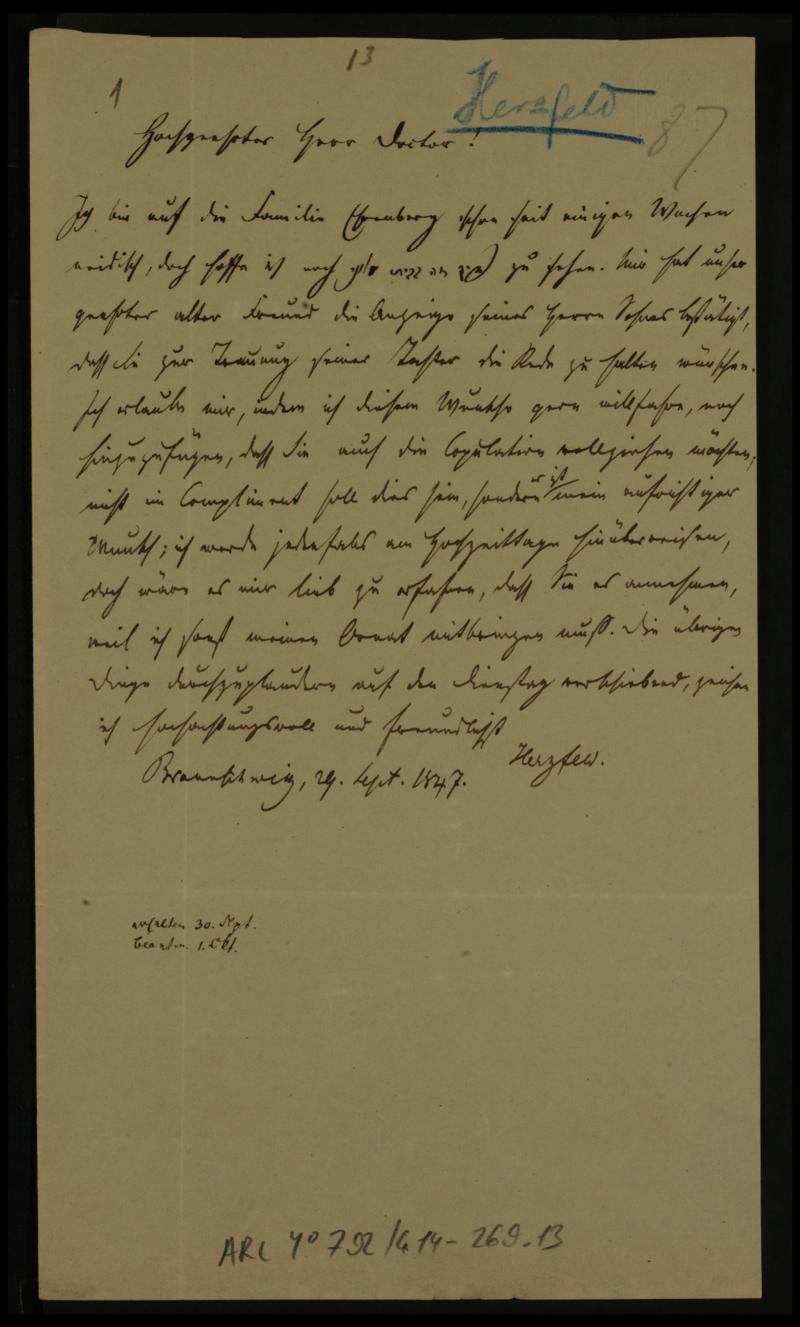 13
1
Herzfeld
87
Hochgeehrter Herr Doctor!
Ich bin auf die Familie Ehrenberg schon seit einigen Wochen
neidisch, doch hoffe ich noch zu sehen. Mir hat unser
geehrter alter Freund die Anzeige seines Herrn Sohnes bestätigt,
dass Sie zur Trauung seiner Tochter die Rede zu halten wünschen.
Ich erlaube mir, indem ich diesem Wunsche gern willfahre, noch
hinzuzufügen, dass Sie auch die Copulation vollziehen möchten;
nicht ein Compliment soll dies sein, sondern es ist mein aufrichtiger
Wunsch; ich werde jedenfalls am Hochzeittage hinüberreisen,
doch wäre es mir lieb zu erfahren, dass Sie es annehmen,
weil ich sonst meinen Ornat mitbringen muß. Die übrigen
Dinge durchzuplaudern auf den Dienstag verschiebend, zeichne
ich hochachtungsvoll und freundlichst
Herzfeld.
Braunschweig, 29. Sept. 1847.
erhalten 30. Sept.
beantw. 1. Okt.
ARC 4° 792/G14-269.13